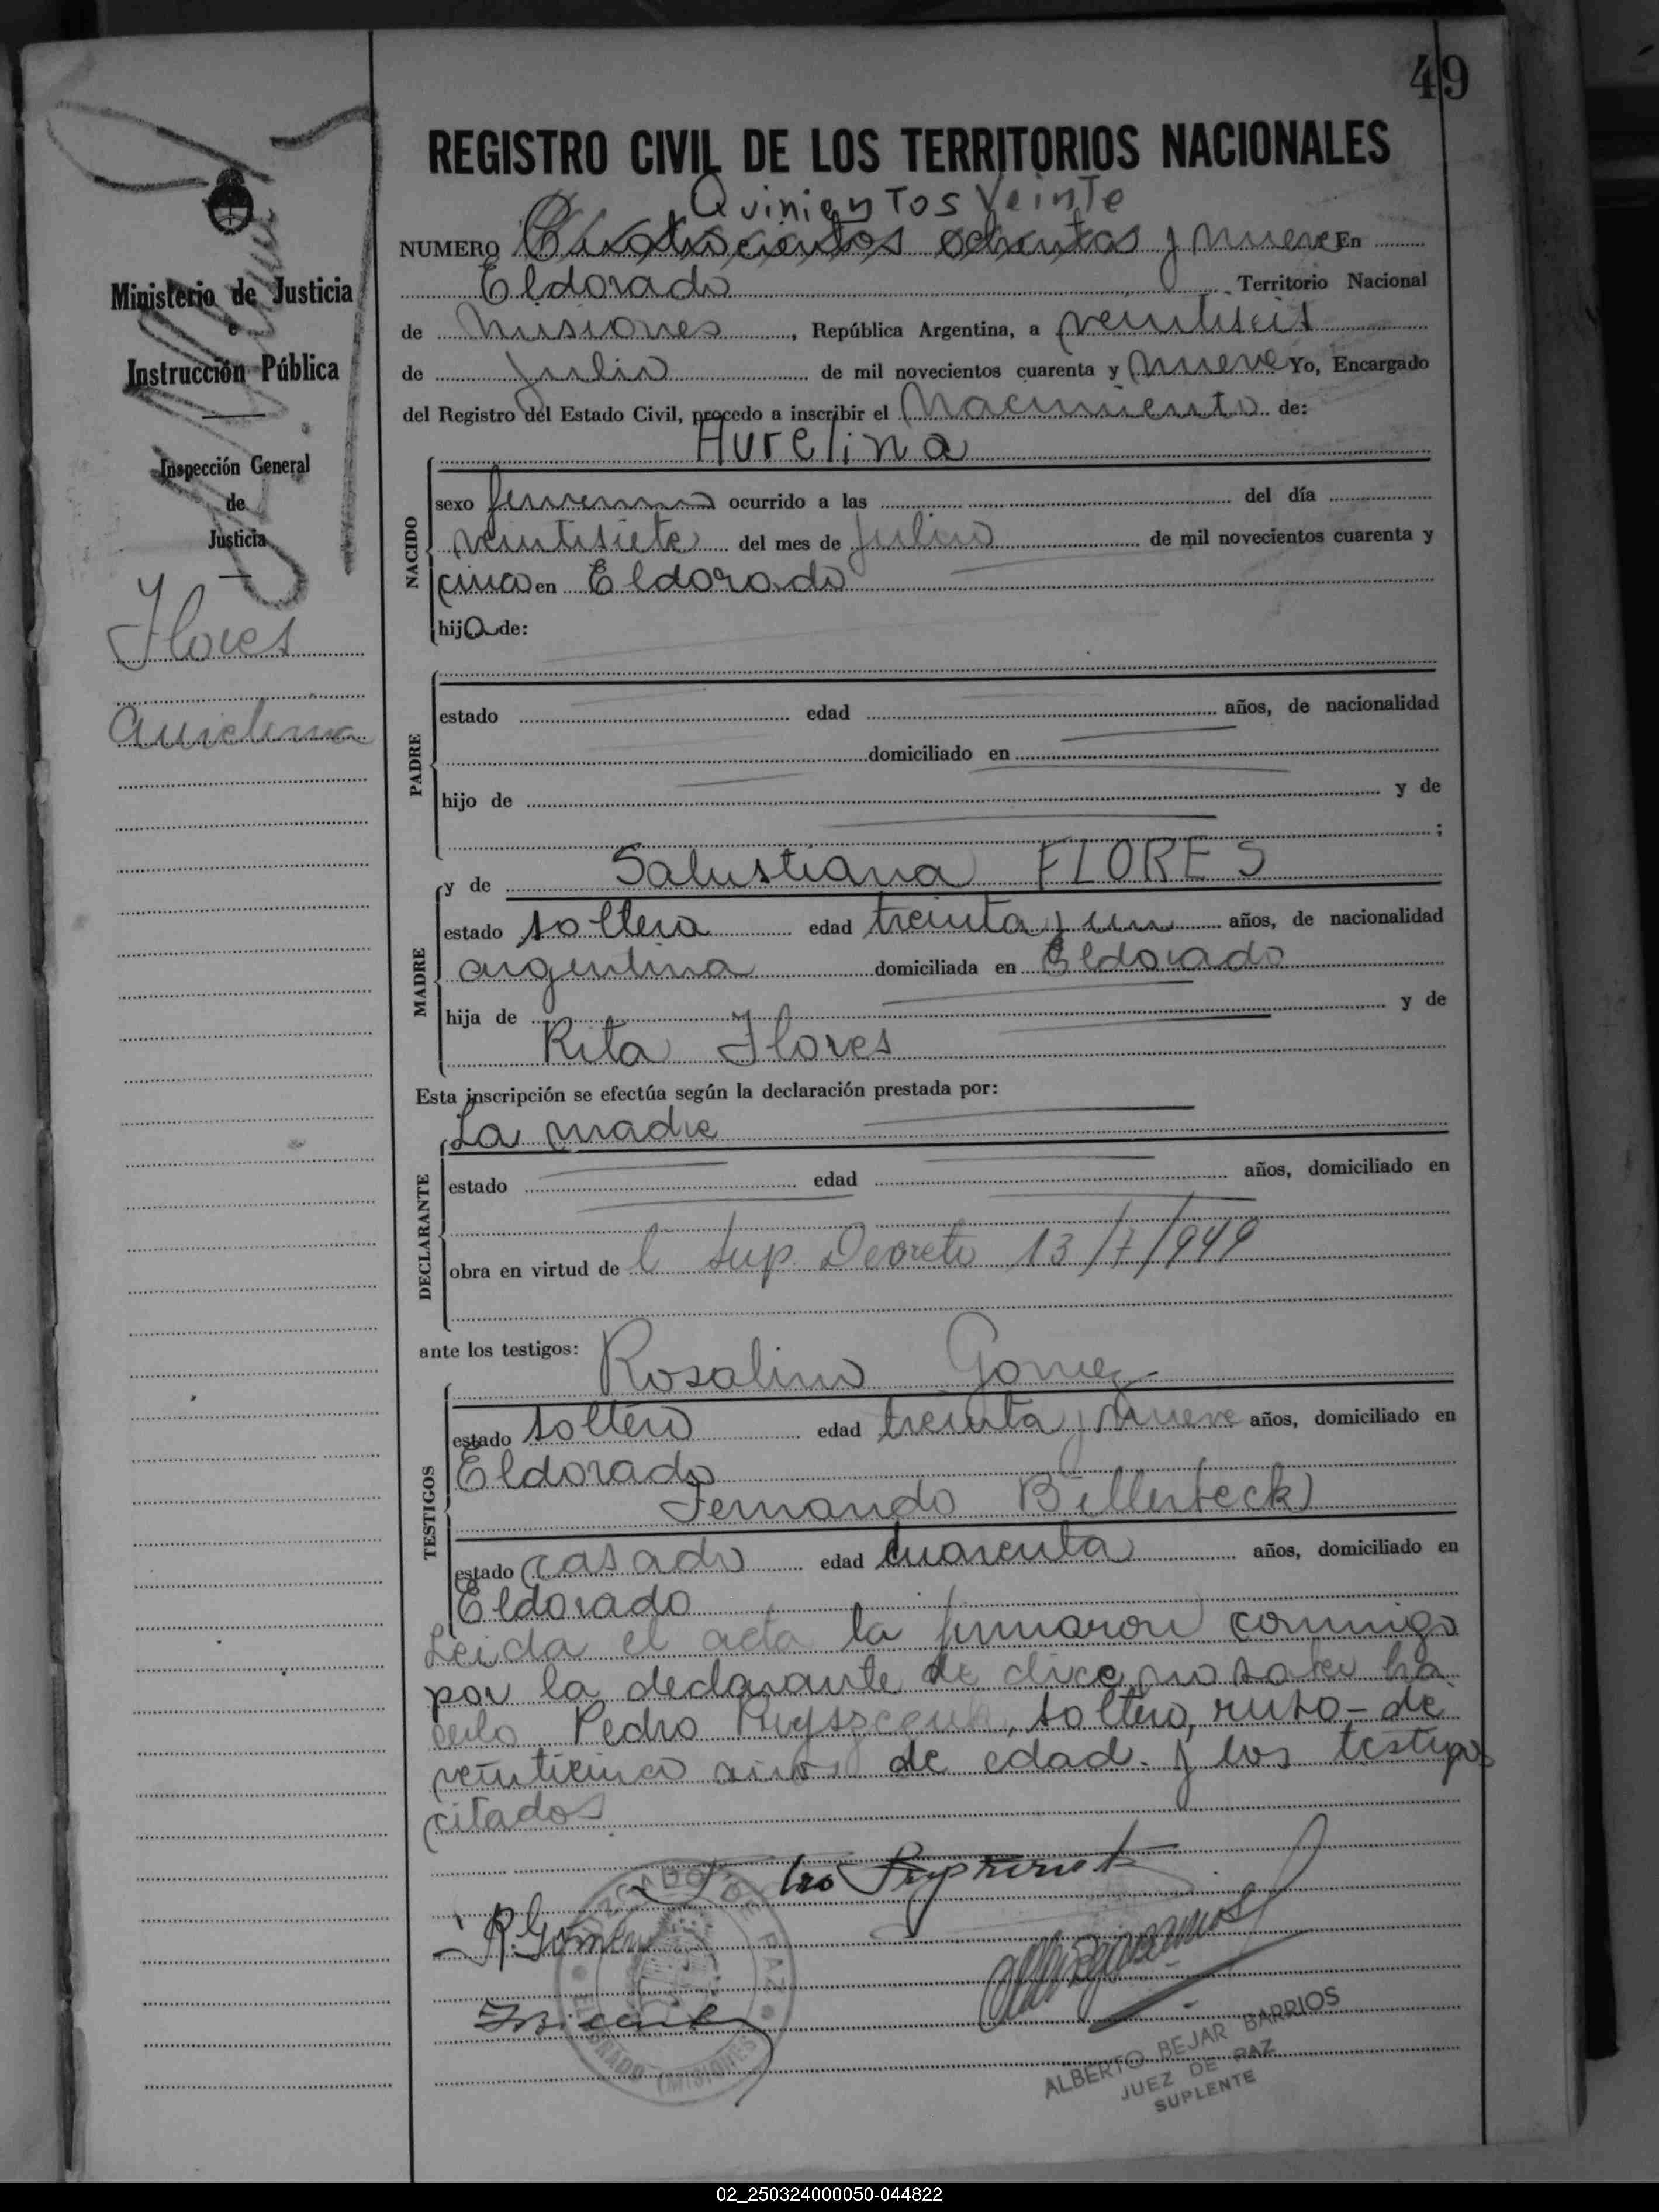 49
REGISTRO CIVIL DE LOS TERRITORIOS NACIONALES
Quinientos Veinte
NUMERO Cuatrocientos ochentas y nueve En
Eldorado Territorio Nacional
de Misiones, República Argentina, a veintiseis
de Julio de mil novecientos cuarenta y nueve Yo, Encargado
del Registro del Estado Civil, procedo a inscribir el Nacimiento de:
Aurelina
NACIDO
sexo femenino ocurrido a las del día
veintisiete del mes de Julio de mil novecientos cuarenta y
cinco en Eldorado
hija de:
PADRE
estado edad años, de nacionalidad
domiciliado en
hijo de y de
;
MADRE
y de Salustiana FLORES
estado soltera edad treinta y un años, de nacionalidad
argentina domiciliada en Eldorado
hija de y de
Rita Flores
Esta inscripción se efectúa según la declaración prestada por:
DECLARANTE
La madre
estado edad años, domiciliado en
obra en virtud de l Sup. Decreto 13/7/949
ante los testigos:
TESTIGOS
Rosalino Gomez
estado soltero edad treinta y nueve años, domiciliado en
Eldorado
Fernando Billerbeck
estado casado edad cuarenta años, domiciliado en
Eldorado
Leida el acta la firmaron conmigo
por la declarante de dice no saber ha
cerlo Pedro soltero, ruso - de
veinticinco años de edad. y los testigos
citados
R. Gomez
JUZGADO DE PAZ
ELDORADO (MISIONES)
ALBERTO BEJAR BARRIOS
JUEZ DE PAZ
SUPLENTE
Ministerio de Justicia
e
Instrucción Pública
Inspección General
de
Justicia
Flores
Aurelina
02_250324000050-044822